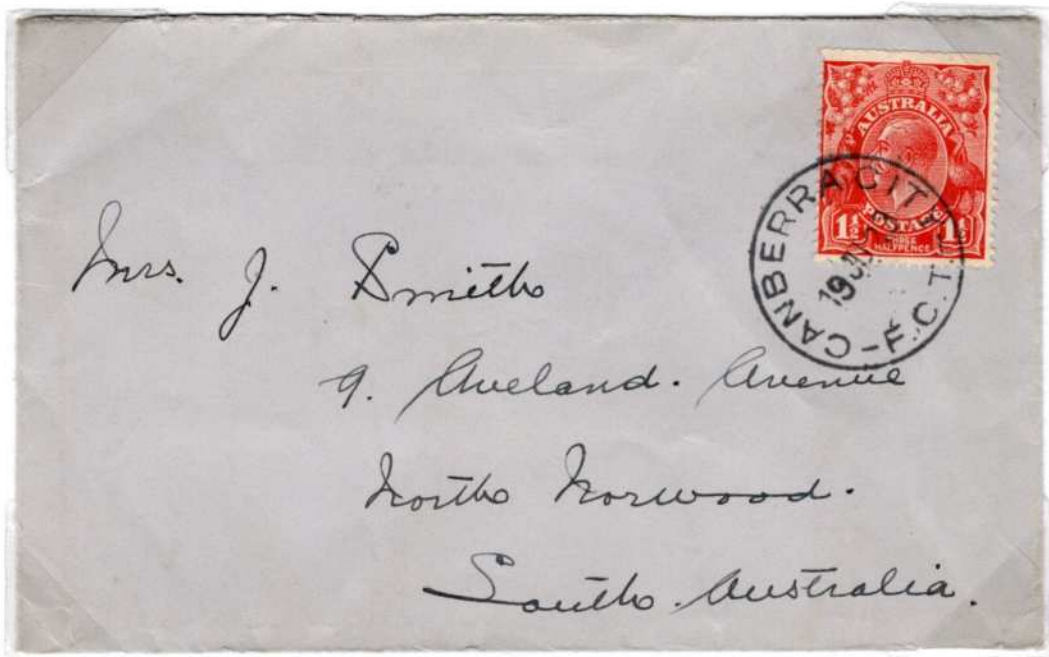 AUSTRALIA
POSTAGE
1½ THREE HALFPENCE 1½
CANBERRA CIT
F.C.T.
19 JU
Mrs. J. Smith
9. Aveland. Avenue
North Norwood.
South. Australia.